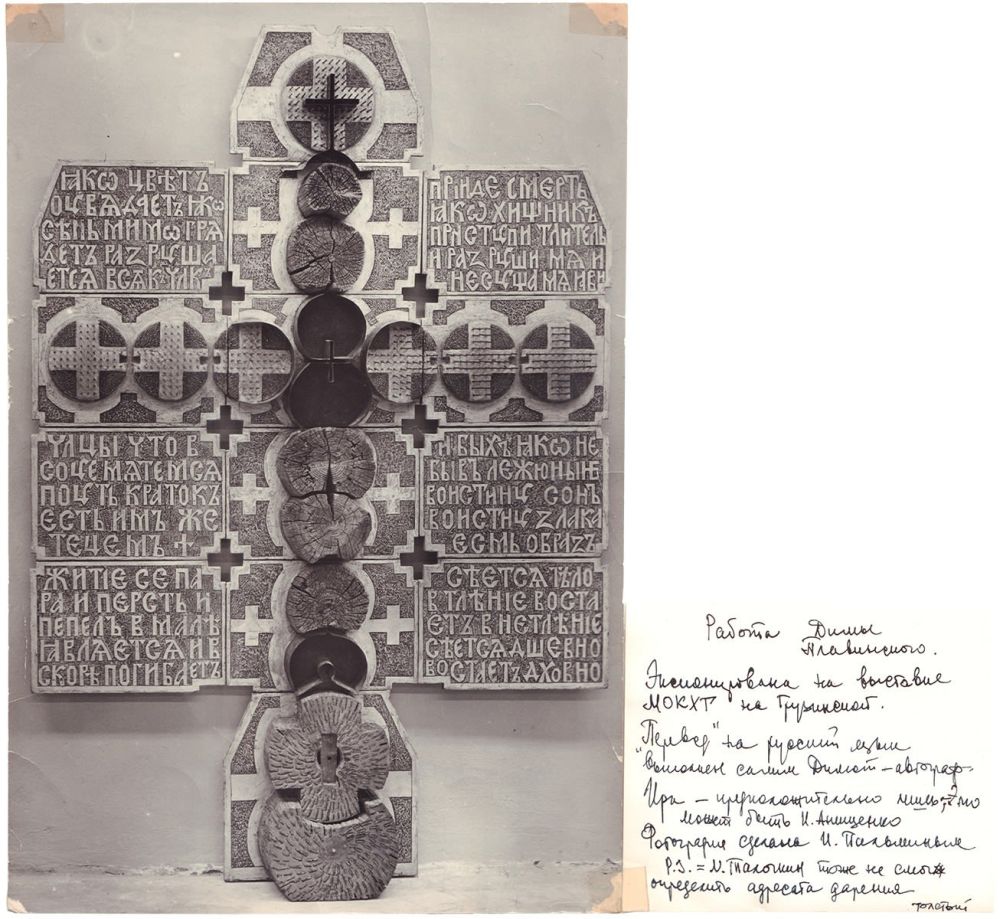 ꙖКѠ ЦВѢТЪ
СѢНЬ МИМѠ ГРѦ
ДЕТЪ РАЗРꙋША
ЕТСѦ ВСѦК
ПРІИДЕ СМЕРТЬ
ꙖКѠ ХИЩНИКЪ
ПРИСТꙋПИ ТЛИТЕЛЬ
И РАЗРꙋШИ МѦ И
ЧТО В
СꙋЕ МАТЕМСѦ
ПꙋТЬ КРАТОКЪ
ЕСТЬ ИМЪ ЖЕ
ТЕЧЕМЪ +
И БЫХЪ ꙖКѠ НЕ
БЫВЪ ЛЕЖЮ НЫНѢ
ВОИСТИНꙋ СОНЪ
ВОИСТИНꙋ ЗЛАКА
ЕСМЬ ОБРАЗЪ
ЖИТІЕ СЕ ПА
РА И ПЕРСТЬ И
ПЕПЕЛЪ В МАЛѢ
ꙖВЛѦЕТСѦ И В
СКОРѢ ПОГИБАЕТЪ
СѢЕТСѦ ТѢЛО
В ТЛѢНІЕ ВОСТА
ЕТЪ В НЕТЛѢНІЕ
СѢЕТСѦ ДꙋШЕВНО
ВОСТАЕТЪ ДꙋХОВНО
Работа Димы
Плавинского.
Экспонирована на выставке
МОКХГ на Грузинской.
"Перевод" на русский язык
выполнен самим Димой – автограф.
Ира – предположительно
может быть И. Анищенко
Фотография сделана И. Пальминым
P.S. = И. Пальмин тоже не смог
определить адресата дарения
Толстый